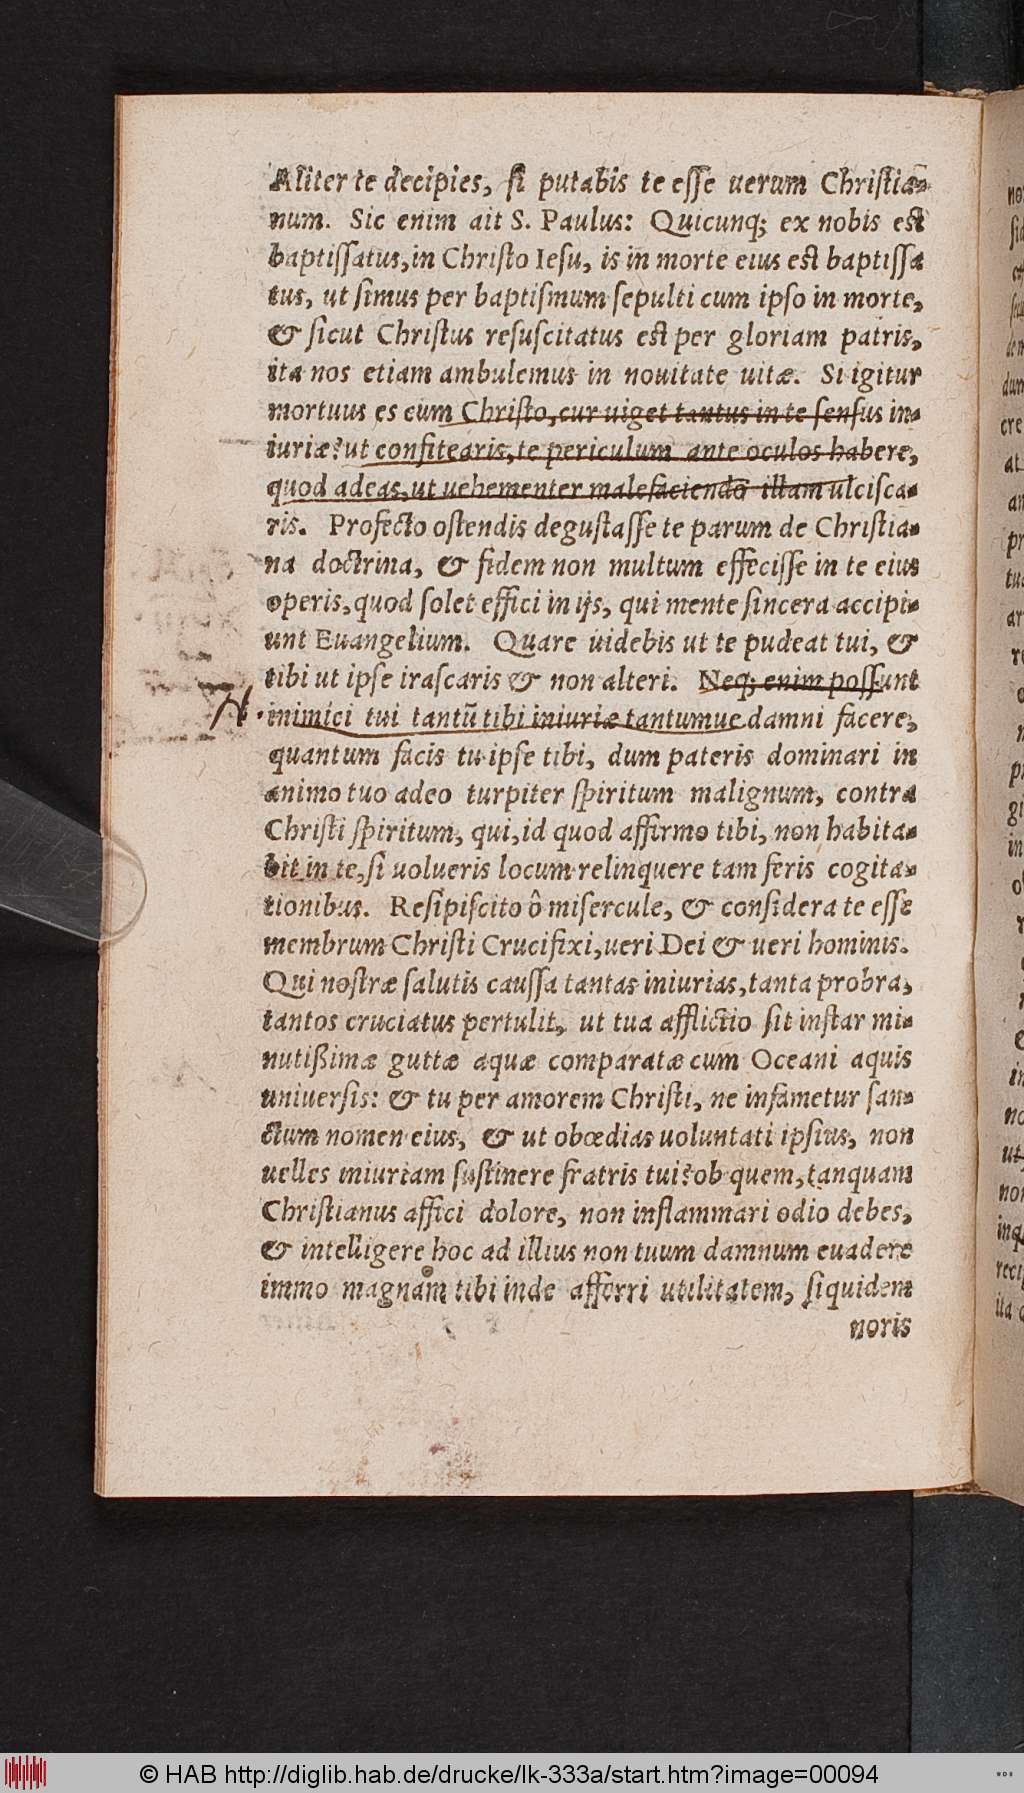 Aliter te decipies, ſi putabis te eſſe uerum Chriſtia-
num. Sic enim ait S. Paulus: Quicunq; ex nobis eſt
baptiſſatus, in Chriſto Ieſu, is in morte eius eſt baptiſſa
tus, ut ſimus per baptiſmum ſepulti cum ipſo in morte,
& ſicut Chriſtus reſuſcitatus eſt per gloriam patris,
ita nos etiam ambulemus in nouitate uitæ. Si igitur
mortuus es cum Chriſto, cur uiget tantus in te ſenſus in-
iuriæ? ut confitearis, te periculum ante oculos habere,
quod adeas, ut uehementer malefaciendo illam ulciſca-
ris. Profecto oſtendis deguſtaſſe te parum de Chriſtia-
na doctrina, & fidem non multum effeciſſe in te eius
operis, quod ſolet effici in ijs, qui mente ſincera accipi-
unt Euangelium. Quare uidebis ut te pudeat tui, &
tibi ut ipſe iraſcaris & non alteri. Neq; enim poſſunt
inimici tui tantũ tibi iniuriæ tantumue damni facere,
quantum facis tu ipſe tibi, dum pateris dominari in
animo tuo adeo turpiter ſpiritum malignum, contra
Chriſti ſpiritum, qui, id quod affirmo tibi, non habita-
bit in te, ſi uolueris locum relinquere tam feris cogita-
tionibus. Reſipiſcito ô miſercule, & conſidera te eſſe
membrum Chriſti Crucifixi, ueri Dei & ueri hominis.
Qui noſtræ ſalutis cauſſa tantas iniurias, tanta probra,
tantos cruciatus pertulit, ut tua afflictio ſit inſtar mi-
nutißimæ guttæ aquæ comparatæ cum Oceani aquis
uniuerſis: & tu per amorem Chriſti, ne infametur ſan-
ctum nomen eius, & ut obœdias uoluntati ipſius, non
uelles iniuriam ſuſtinere fratris tui? ob quem, tanquam
Chriſtianus affici dolore, non inflammari odio debes,
& intelligere hoc ad illius non tuum damnum euadere
immo magnam tibi inde afferri utilitatem, ſiquidem
noris
© HAB http://diglib.hab.de/drucke/lk-333a/start.htm?image=00094